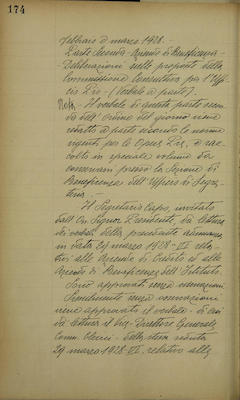 174
febbraio e marzo 1928.
Parte Seconda - Aziende di Beneficenza -
Deliberazioni sulle proposte della
Commissione Consultiva per l'Uffi-
cio Pio - (Verbale a parte).
Nota - Il verbale di questa parte secon-
da dell'Ordine del giorno viene
redatto a parte secondo le norme
vigenti per le Opere Pie, e rac-
colto in speciale volume da
conservarsi presso la Sezione di
Beneficenza dell'Ufficio di Segre-
teria.
Il Segretario Capo, invitato
dall'On. Signor Presidente, dà lettura
dei verbali della precedente adunanza
in data 29 marzo 1928-VI rela-
tivi alle Aziende di Credito ed alle
Aziende di Beneficenza dell'Istituto.
Sono approvati senza osservazioni.
Parimenti senza osservazioni
viene approvato il verbale - di cui
dà lettura il Vice-Direttore Generale
Comm. - della seduta
29 marzo 1928-VI, relativo alle